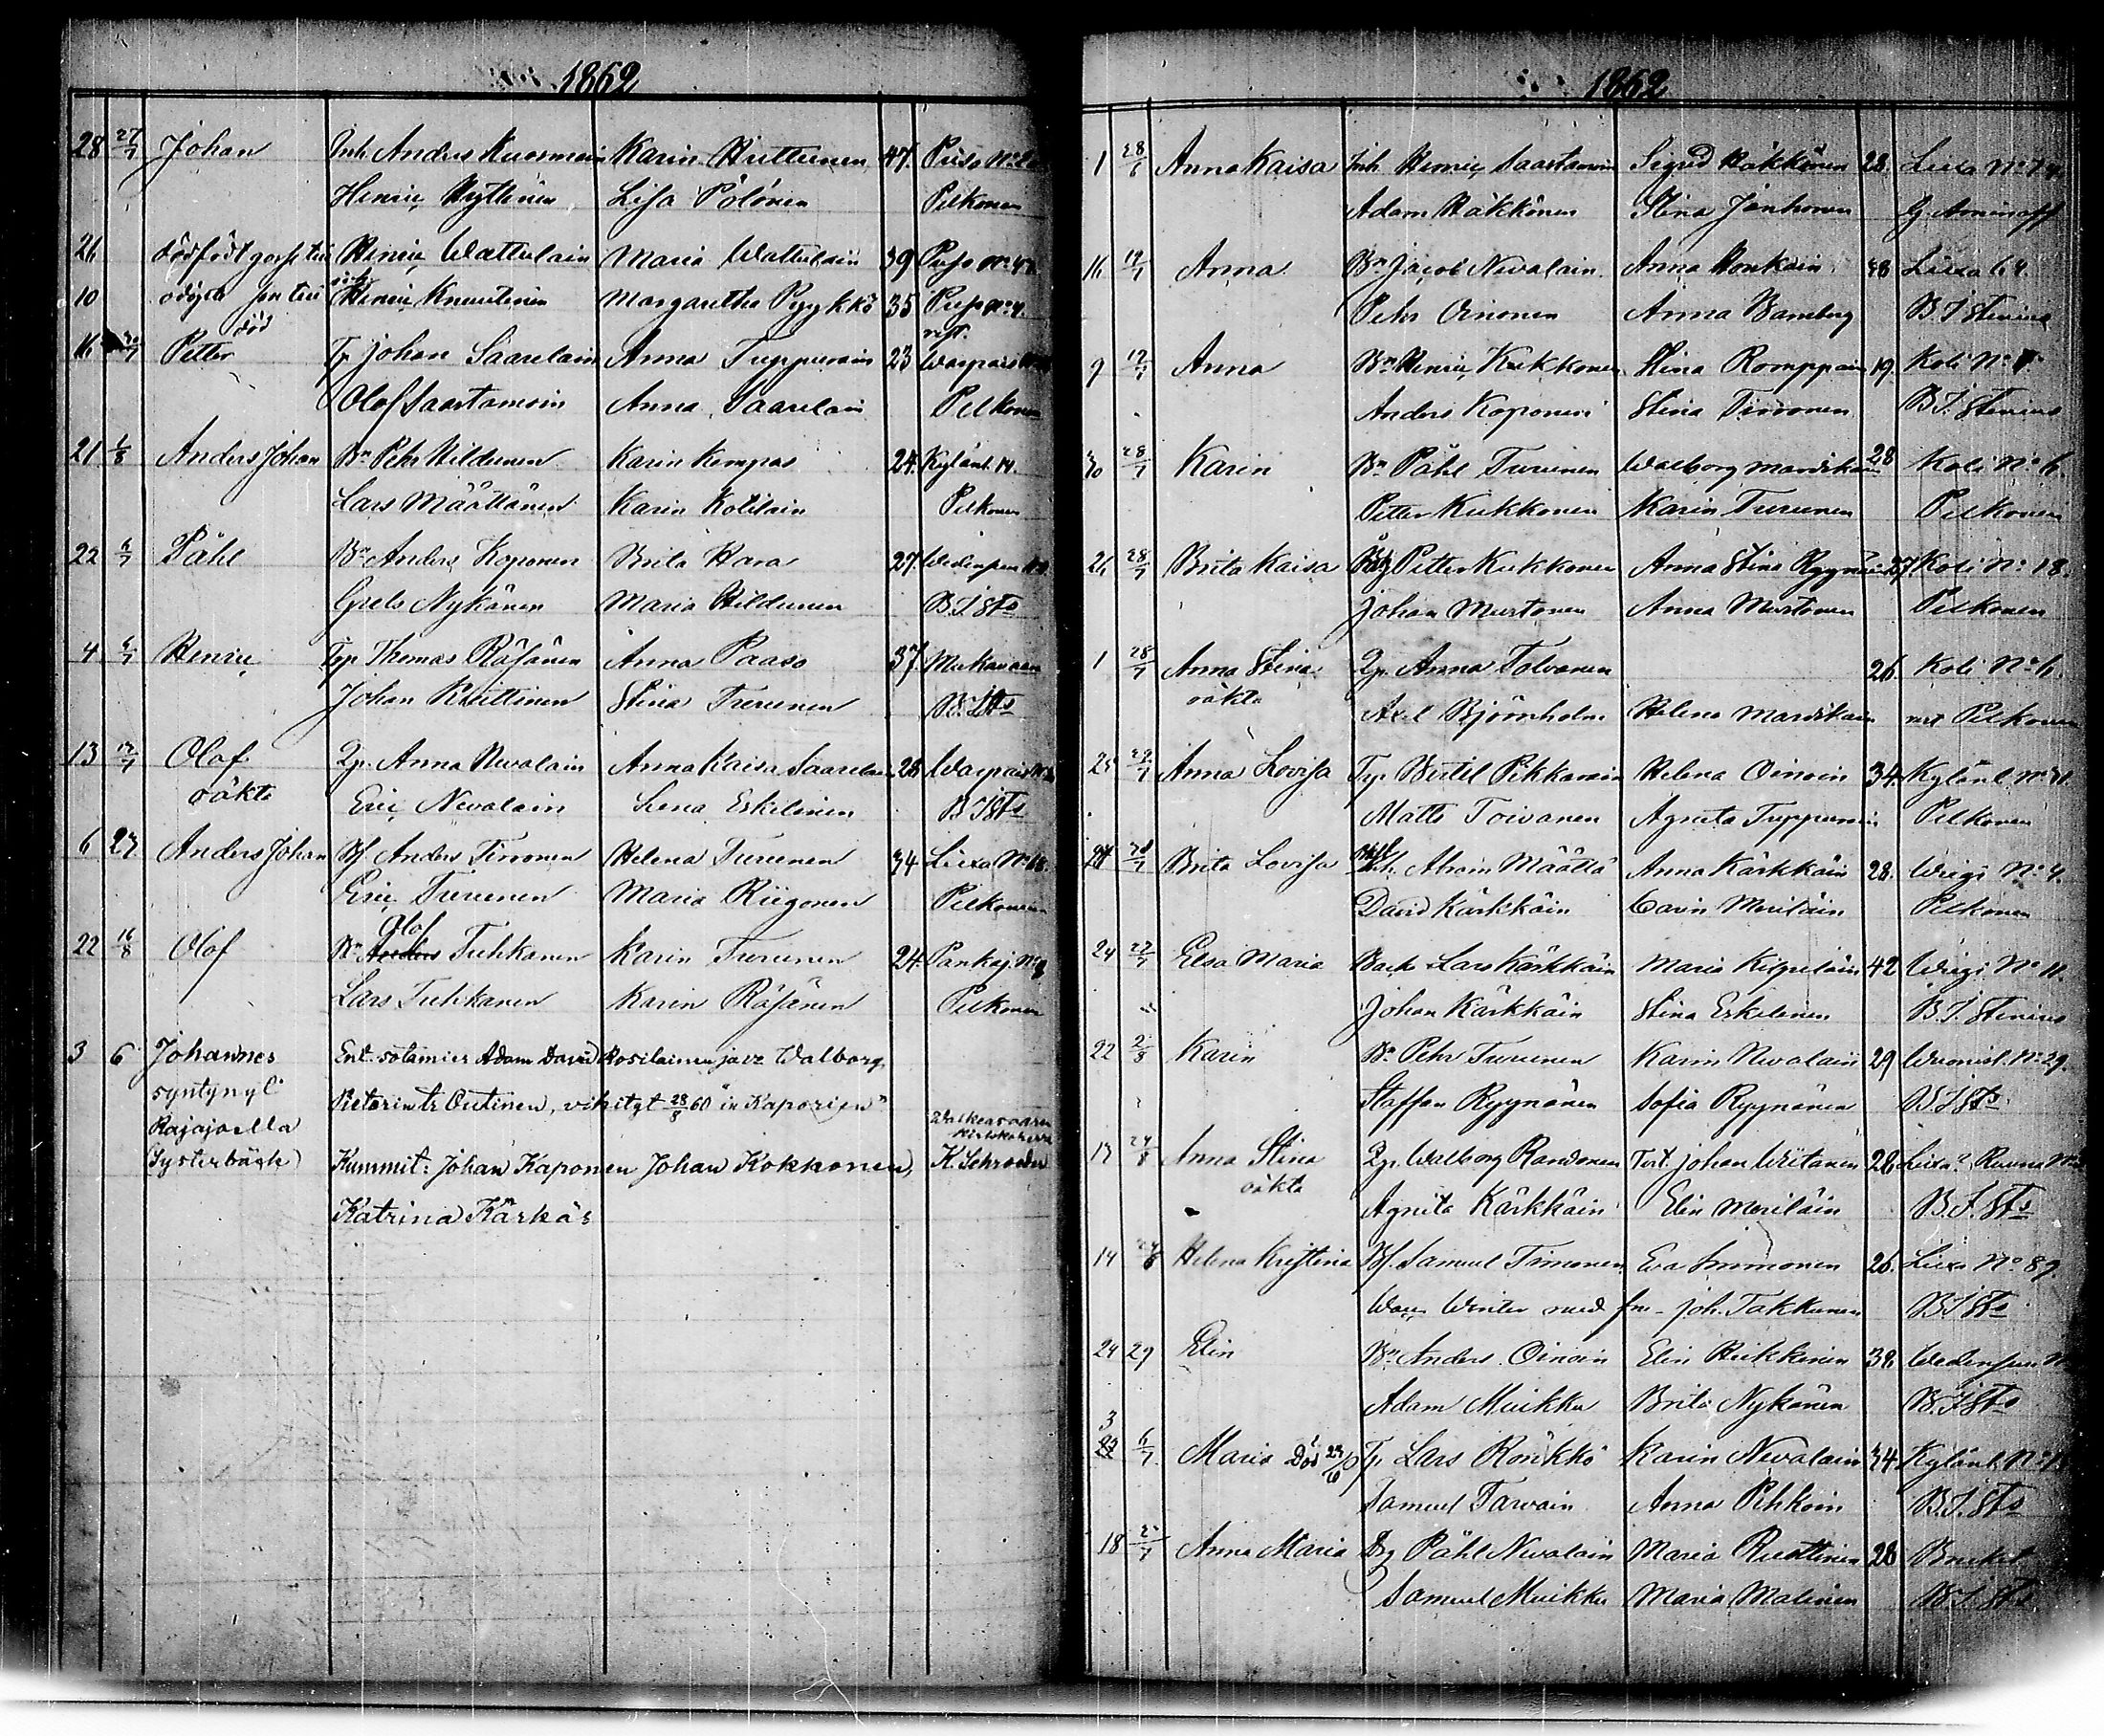 1862
28 27/7 Johan Inh. Anders Kuosmain Karin Huttunen 47. Puso No
Henric Hyttinen Lisa Pölönen Pelkonen
26 dödfödt gosse till Henric Wattulain Maria Wattulain 39 Puso No
10 odöpta son till Henric Knuutinen Margaretha Pyykkö 35 Puso No 4.
död
16 Petter Tp Johan Saarelain Anna Tuppurain 23
Olof Saastamoin Anna Saarelain Pelkonen
21 1/8 Anders Johan Bn Pehr Hildunen Karin Kempas 24. Kylänl. 14.
Lars Määttänen Karin Kotilain Pelkonen
22 6/7 Påhl Bn Anders Koponen Brita Hara 27.
Grels Nykänen Maria Hildunen B J Sts
4 6/7 Henric Tp. Thomas Räsänen Anna Paaso 37.
Johan Stina Turunen B. J Sts
13 Olof Qp. Anna Nevalain Anna Kaisa Saarelain 28
oäkta Eric Nevalain Lena Eskelinen B J Sts
6 27 Anders Johan Bf Anders Timonen Helena Turunen 34 Liexa No 18.
Eric Turunen Maria Riigonen Pelkonen
Olof
22 16/8 Olof Bn Anders Tuhkanen Karin Turunen 24. Pankaj. No
Lars Tuhkanen Karin Räsänen Pelkonen
3 6 Johannes Ent. sotamies Adam David Kosilainen ja v: Walborg
syntynyt Pietarintr Outinen, vihityt 28/8 60 in "Kaporien"
Rajajoella
(Systerbäck) Kummit: Johan Kaponen Johan Kokkonen, K. Schroeder
Katrina Kärkäs
1862
1 28/6 Anna Kaisa Inh Henric Saastamoin Sigrid Häkkönen 28. Liexa No
Adam Häkkönen Stina Jänhonen G. Aminoff
16 Anna Bn Jacob Nevalain Anna Honkain 48 Liexa 64.
Pehr Oinonen Anna Bamberg B. J Stenius
9 Anna Bn Henric Kukkonen Stina Romppain 19. Koli No
Anders Koponen Stina Timonen B J. Stenius
30 28/7 Karin Bn Påhl Turunen Walborg Mardikain 28 Koli No 6.
Petter Kukkonen Karin Turunen Pelkonen
26 28/7 Brita Kaisa Petter Kukkonen Anna Stina Ryynäin 27. Koli No 18.
Johan Murtonen Anna Murtonen Pelkonen
1 28/7 Anna Stina Qp. Anna Tolvanen 26. Koli No 6.
oäkta Axel Björnholm Helena Mardikain Pelkonen
25 29/7 Anna Lovisa Tp. Bertel Pikkarain Helena Oinoin 34. Kylänl. No
Matts Toivanen Agneta Tuppurain Pelkonen
30/7 Brita Lovisa Abram Määttä Anna Kärkkäin 28. Wiegi No 4.
David Kärkkäin Carin Meriläin Pelkonen
24 27/7 Elsa Maria Lars Kärkkäin Maria Kilpeläin 42 Wiegi No 11.
Johan Kärkkäin Stina Eskelinen B. J. Stenius
22 2/8 Karin Bn Pehr Turunen Karin Nevalain 29 Wuonisl. No 29.
Staffan Ryynänen Sofia Ryynänen B J Sts
17 24/8 Anna Stina Qp. Walborg Randonen Test. Johan Wiitanen 28.
oäkta Agneta Kärkkäin Elin Meriläin B. J. Sts
14 24/8 Helena Kristina Bf. Samuel Timonen Eva Immonen 26. Liexa No 87.
Winter med fru - Joh. Takkunen B J Sts
24 29 Elin Bn Anders Oinoin Elin Heikkinen 38.
Adam Muikku Brita Nykänen B. J Sts
3
6/7 Maria Död Tp. Lars Rönkkö Karin Nevalain 34. Kylänl. No
Samuel Tarvain Anna Pehkoin B. J. Sts
18 Anna Maria Drg Påhl Nevalain Maria Ruottinen 28 Bruket
Samuel Muikku Maria Malinen B J Sts